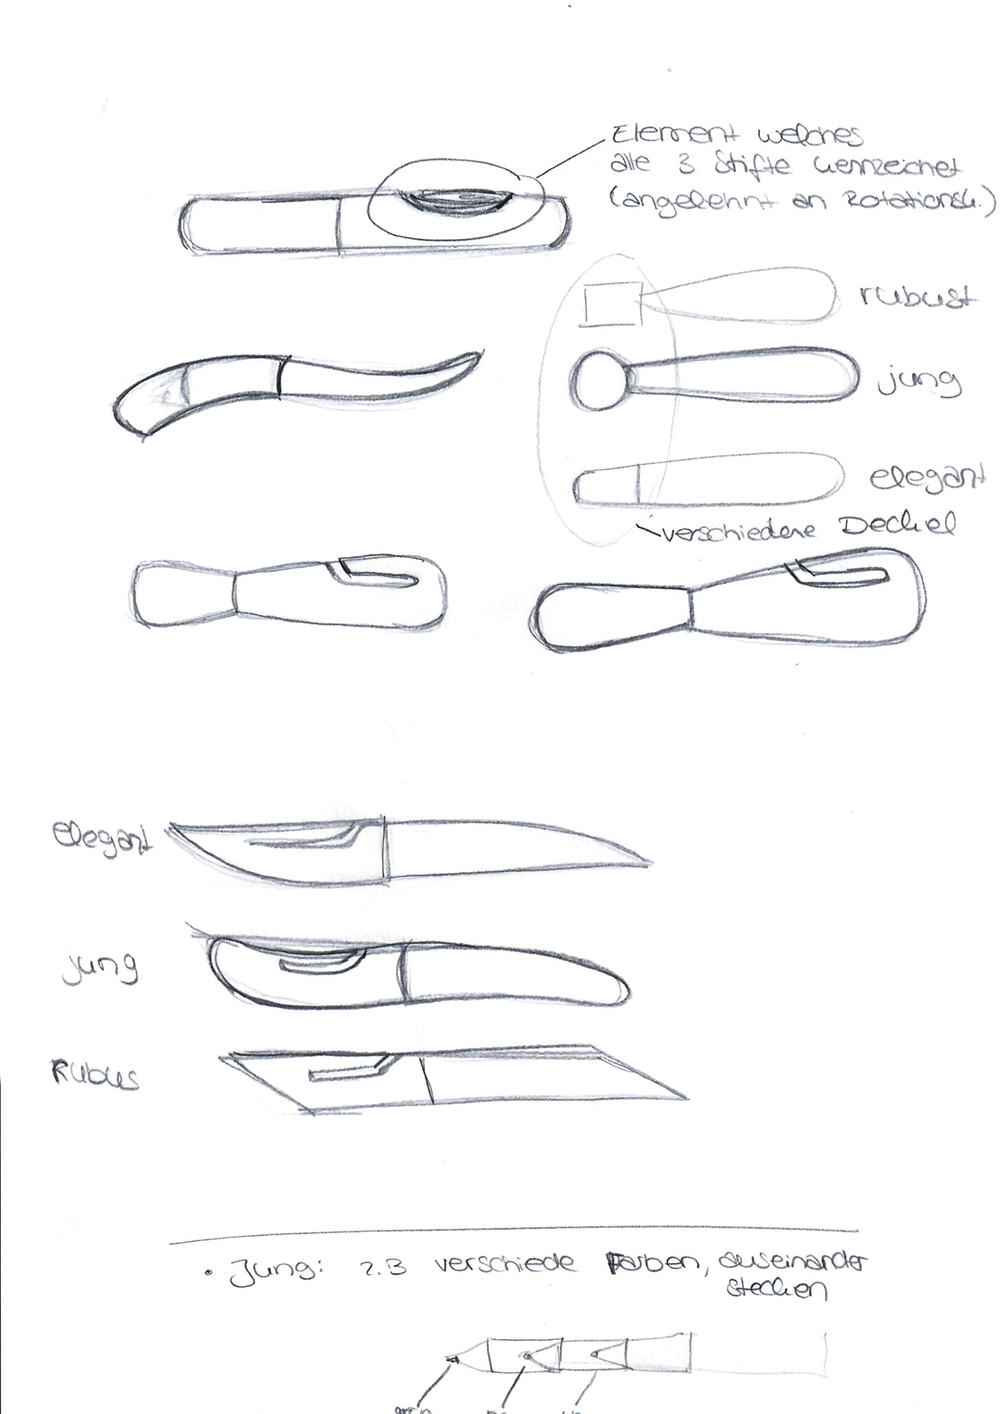 Element welches
alle 3 Stifte kennzeichnet
(angelehnt an Rotationsk.)
rubust
jung
elegant
verschiedene Deckel
elegant
jung
Rubus
• Jung: z.B verschiede Farben, auseinander
stecken